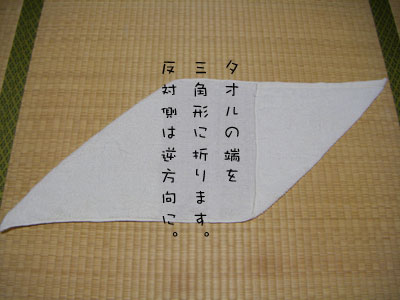 タオルの端を
三角形に折ります。
反対側は逆方向に。